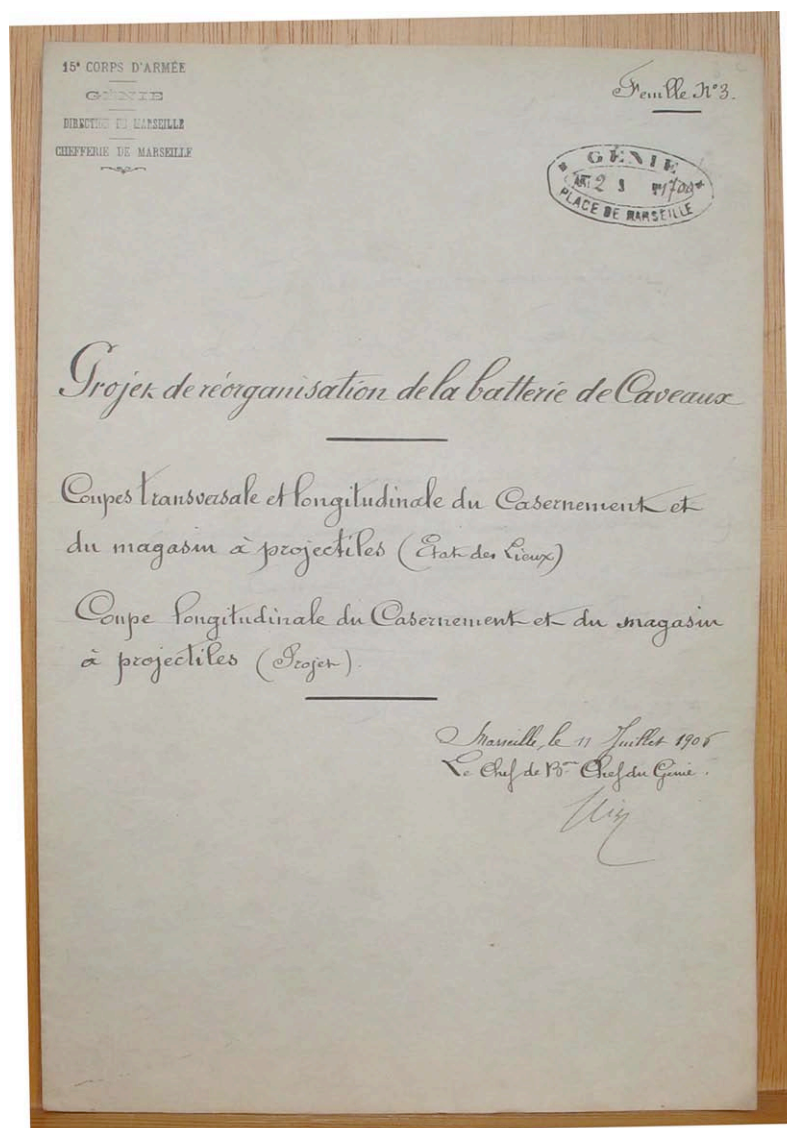 15e CORPS D'ARMÉE
GÉNIE
DIRECTION DE MARSEILLE
CHEFFERIE DE MARSEILLE
Feuille N°3.
GÉNIE
ART 2 § 1700
PLACE DE MARSEILLE
Projet de réorganisation de la batterie de Caveaux
Coupes transversale et longitudinale du Casernement et
du magasin à projectiles (Etat des Lieux)
Coupe longitudinale du Casernement et du magasin
à projectiles (Projet).
Marseille, le 11 Juillet 1906
Le Chef de Bon Chef du Génie.